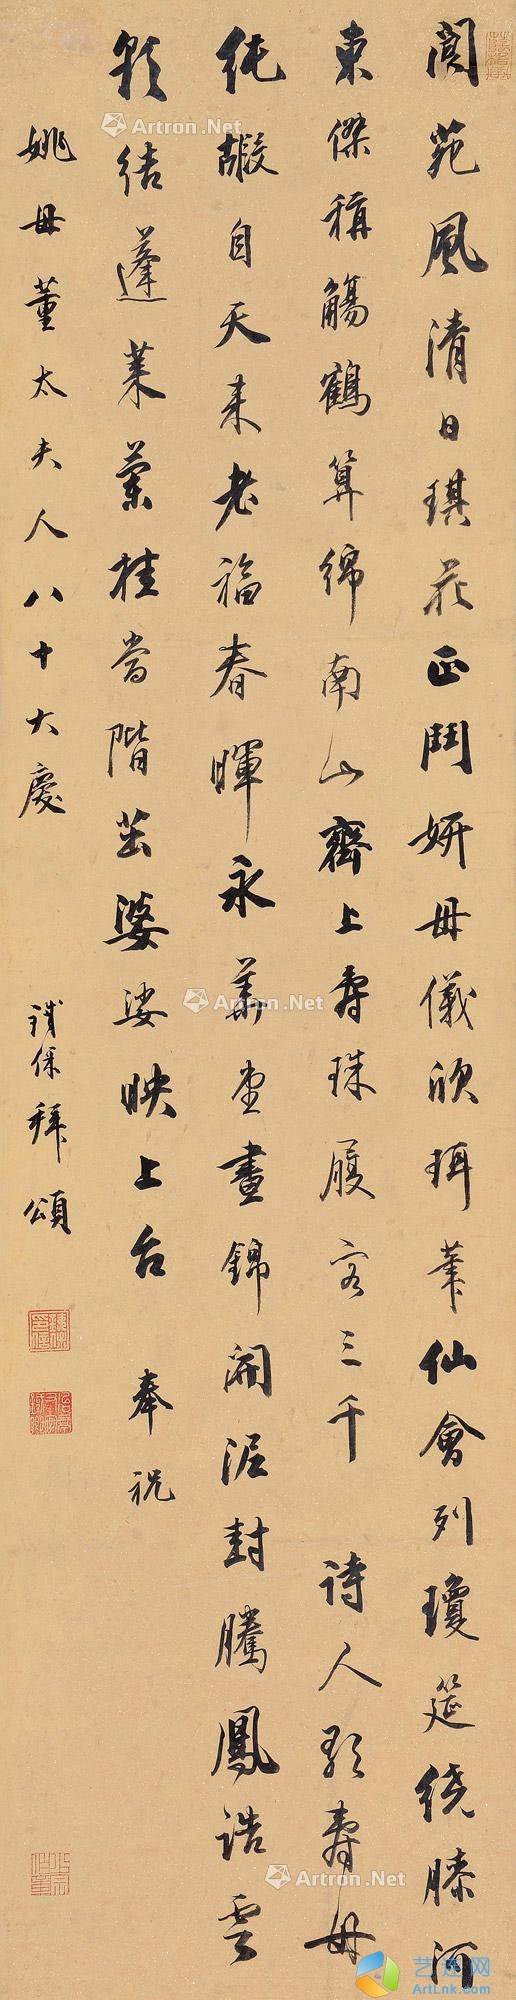 閬苑風清日琪花正鬥妍母儀欣珥筆仙會列瓊筵繞膝河
東傑稱觴鶴算綿南山齊上壽珠履客三千 詩人歌壽母
純嘏自天来老福春暉永華堂晝錦開泥封騰鳳誥雲
彩結蓬萊蘭桂當階茁婆娑映上台 奉祝
姚母董太夫人八十大慶
鐵保拜頌
Artron.Net
Artron.Net
Artron.Net
Artron.Net
Artron.Net
Artron.Net
艺连网
ArtLnk.com